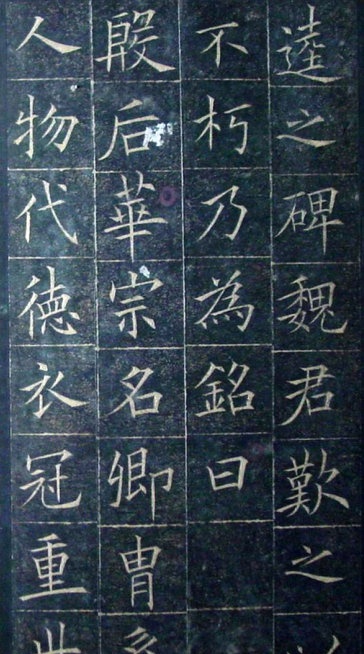 逵之碑魏君歎之以
不朽乃為銘曰
殷后華宗名卿冑系
人物代德衣冠重世